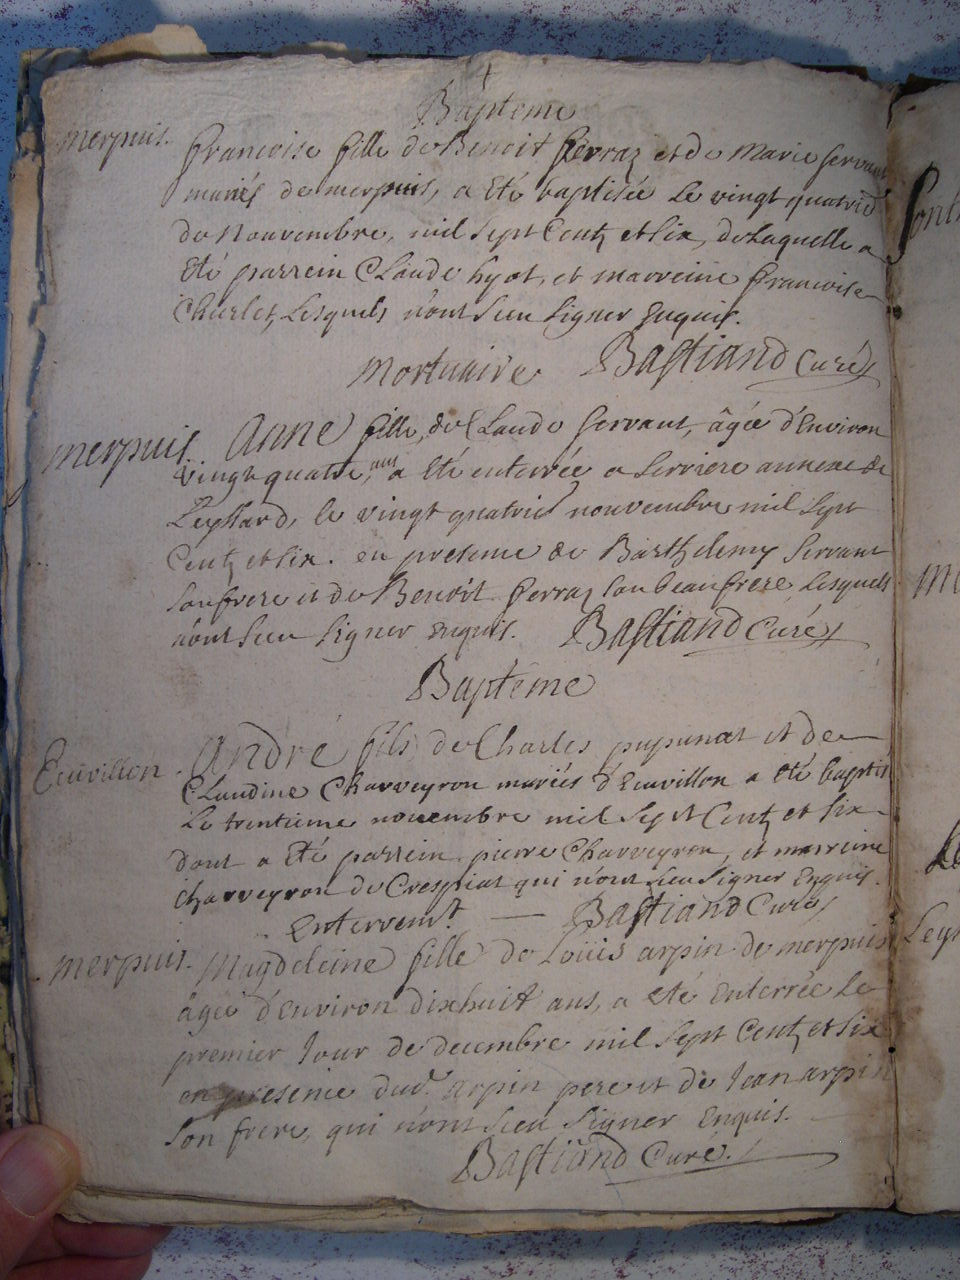 Bapteme
merpuis.
francoise fille de Benoit ferraz et de Marie servant
mariés de merpuis, a eté baptisée le vingt quatrie
de Nouvembre, mil sept Centz et six, de Laquelle a
eté parrein Claude hyot, et marreine francoise
Charlet, Lesquels n'ont sceu signer enquis.
Bastiand Curé
Mortuaire
merpuis. Anne fille, de Claude servant, âgée d'Environ
vingt quatre ans a eté enterrée a serriere annexe de
le vingt quatrie nouvembre mil sept
Centz et six. en presence de Barthelemy servant
son frere et de Benoit ferraz son beaufrere, Lesquels
n'ont sceu signer enquis. Bastiand Curé
Baptême
André fils de Charles pupunat et de
Claudine Charveyron mariés d' a eté baptis
Le trentieme nouembre mil sept Centz et six
dont a eté parrein pierre Charveyron, et marreine
charveyron de Crespiat qui n'ont sceu signer Enquis.
Enterremt. — Bastiand Curé
merpuis. Magdeleine fille de Louis arpin de merpuis
âgée d'Environ dixhuit ans, a eté Enterrée Le
premier Jour de decembre mil sept Centz et six
en presence dud. arpin pere et de Jean arpin
son frere, qui n'ont sceu signer Enquis.
Bastiand Curé.